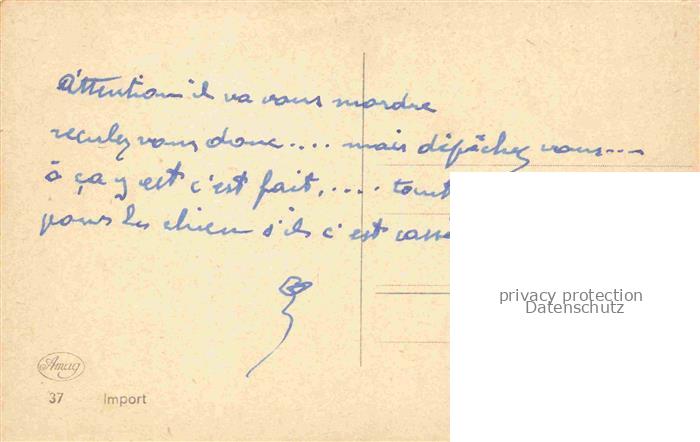 Attention il va vous mordre
reculez vous donc.... mais dépâchez vous....
ô ça y est c'est fait,.... tout
pour les chien s'ils c'est cassé
privacy protection
Datenschutz
Amag
37 Import